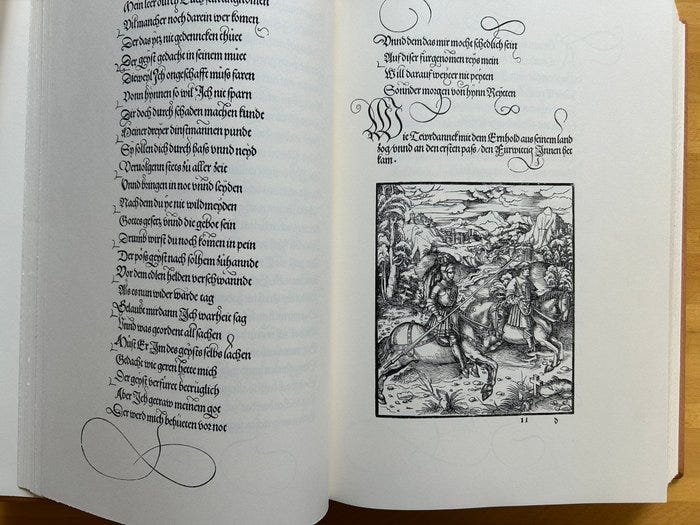 Mein leer durch Euch sein angenomen
Vil mancher noch darein wer komen
Der das ytz nit gedenncken thuet
Der geyst gedacht in seinem muet
Dieweyl Ich ongeschafft muͦß faren
Vonn hynnen so wil Ich nit sparn
Dir doch durch schaden machen kunde
Meiner dreyer dinstmannen punde
Sy sollen dich durch haß vnnd neyd
Veruolgenn stets zu aller zeit
Vnnd bringen in not vnnd leyden
Nachdem du ye nit wild meyden
Gottes gesetz vnnd die gebot sein
Drumb wirst du noch komen in pein
Der pöß geyst nach solhem zuhanndt
Vor dem edlen helden verschwanndt
Als es nun wider wärde tag
Gelaubt mir dann Ich warheit sag
Vnnd was geordent all sachen
Must Er Im des geysts selbs lachen
Gedacht wie geren hette mich
Der geyst verfüret betrüglich
Aber Ich getraw meinem got
Der werd mich behüeten vor not
Vnnd dem das mir mocht schedlich sein
Auf diser fürgenomen reys mein
Will darauf weyter nit peyten
Sonnder morgen von hynn Reyten
Wie Tewrdannck mit dem Ernhold aus seinem land
zog/vnnd an den ersten paß/den Fürwittig Innen het
kam.
11 d